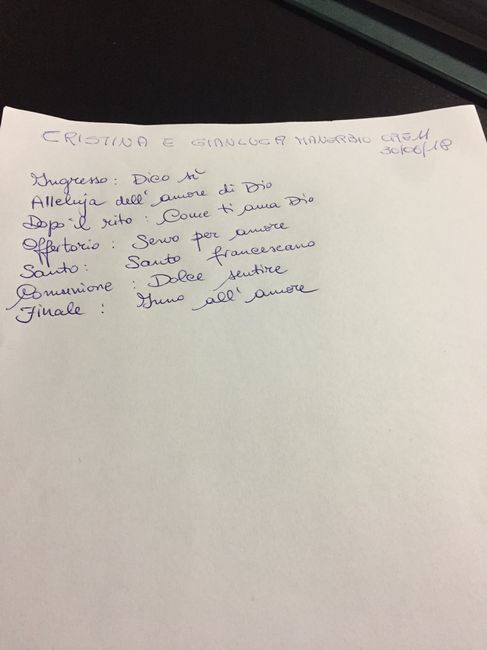 CRISTINA E GIANLUCA MANERBIO ORE 11
30/06/18
Ingresso: Dico sì
Alleluja dell'amore di Dio
Dopo il rito: Come ti ama Dio
Offertorio: Servo per amore
Santo: Santo francescano
Comunione: Dolce sentire
Finale: Inno all'amore